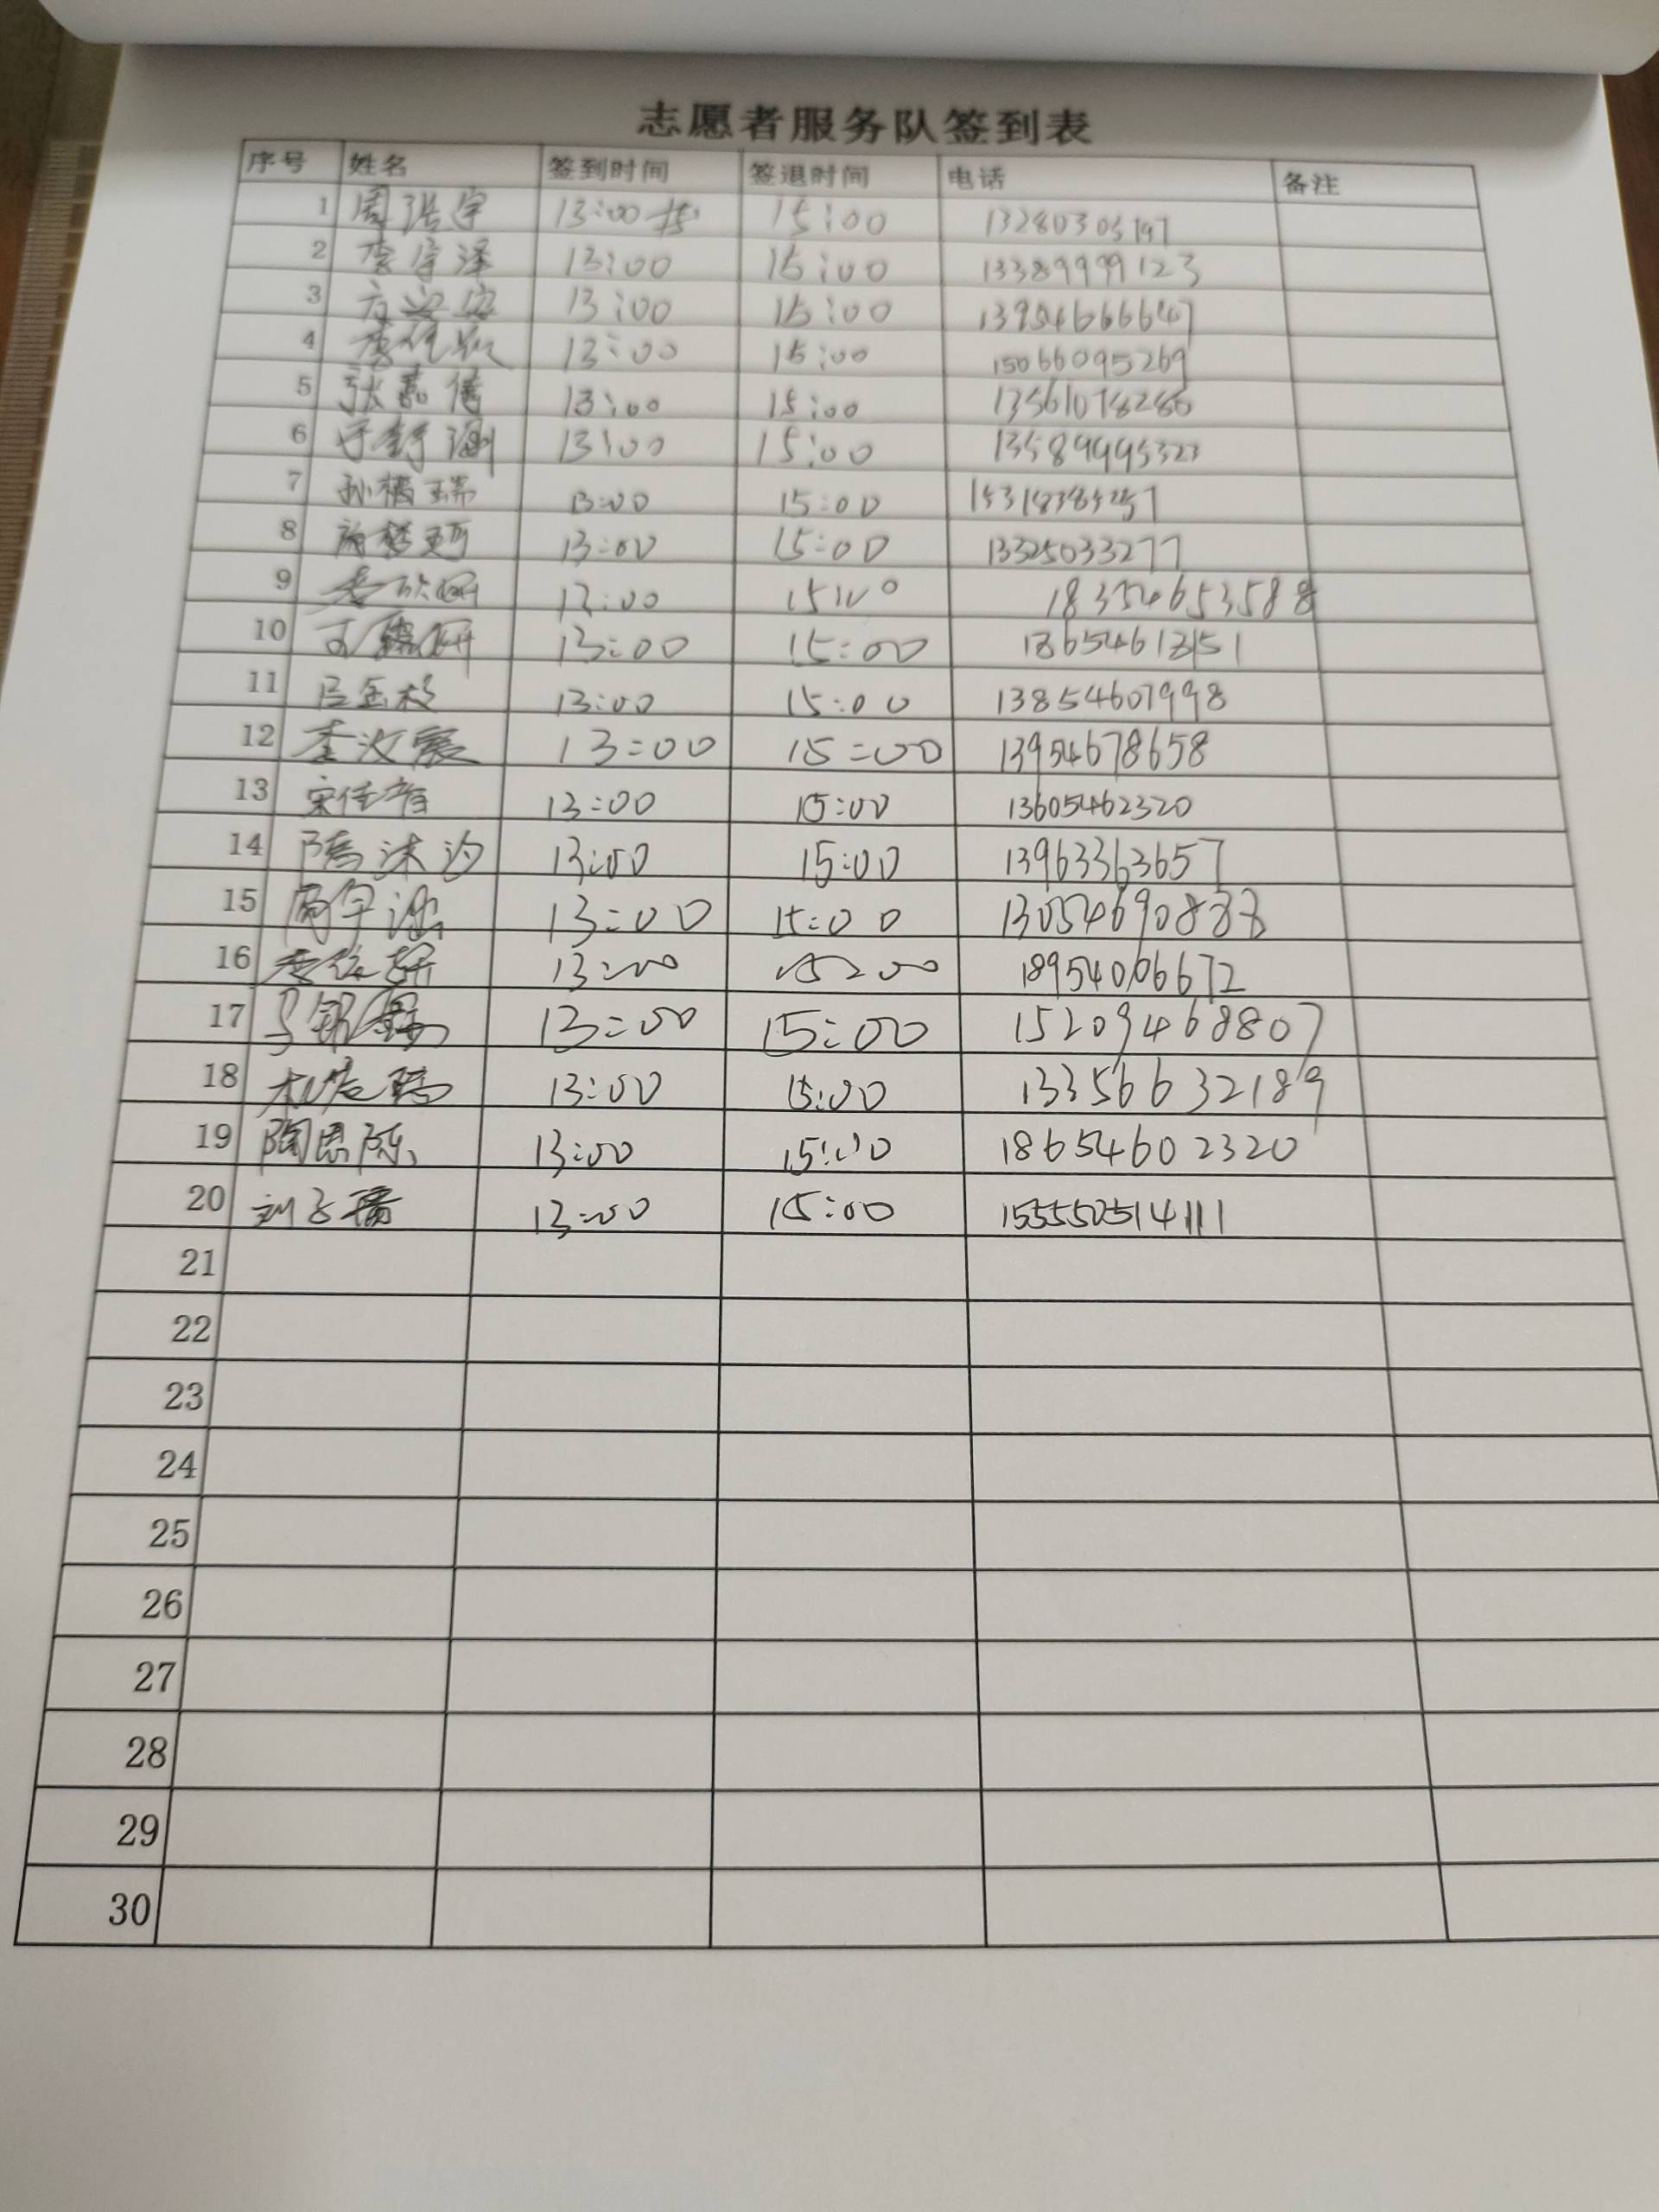 志愿者服务队签到表
序号 姓名 签到时间 签退时间 电话 备注
1 周浩宇 13:00 15:00
2 李宇泽 13:00 15:00 13389999123
3 13:00 15:00 13954666647
4 13:00 15:00 15066095269
5 张嘉倩 13:00 15:00
6 13:00 15:00 13589995323
7 孙楷瑞 13:00 15:00
8 13:00 15:00 13325033277
9 13:00 15:00 18354653588
10 13:00 15:00
11 吕金枝 13:00 15:00 13854607998
12 李汶宸 13:00 15:00 13954678658
13 宋佳育 13:00 15:00 13605462320
14 隋沫汐 13:00 15:00 13963363657
15 13:00 15:00 13054690888
16 13:00 15:00 18954006672
17 13:00 15:00 15209468807
18 13:00 15:00 13356632189
19 陶思陈 13:00 15:00 18654602320
20 13:00 15:00
21
22
23
24
25
26
27
28
29
30